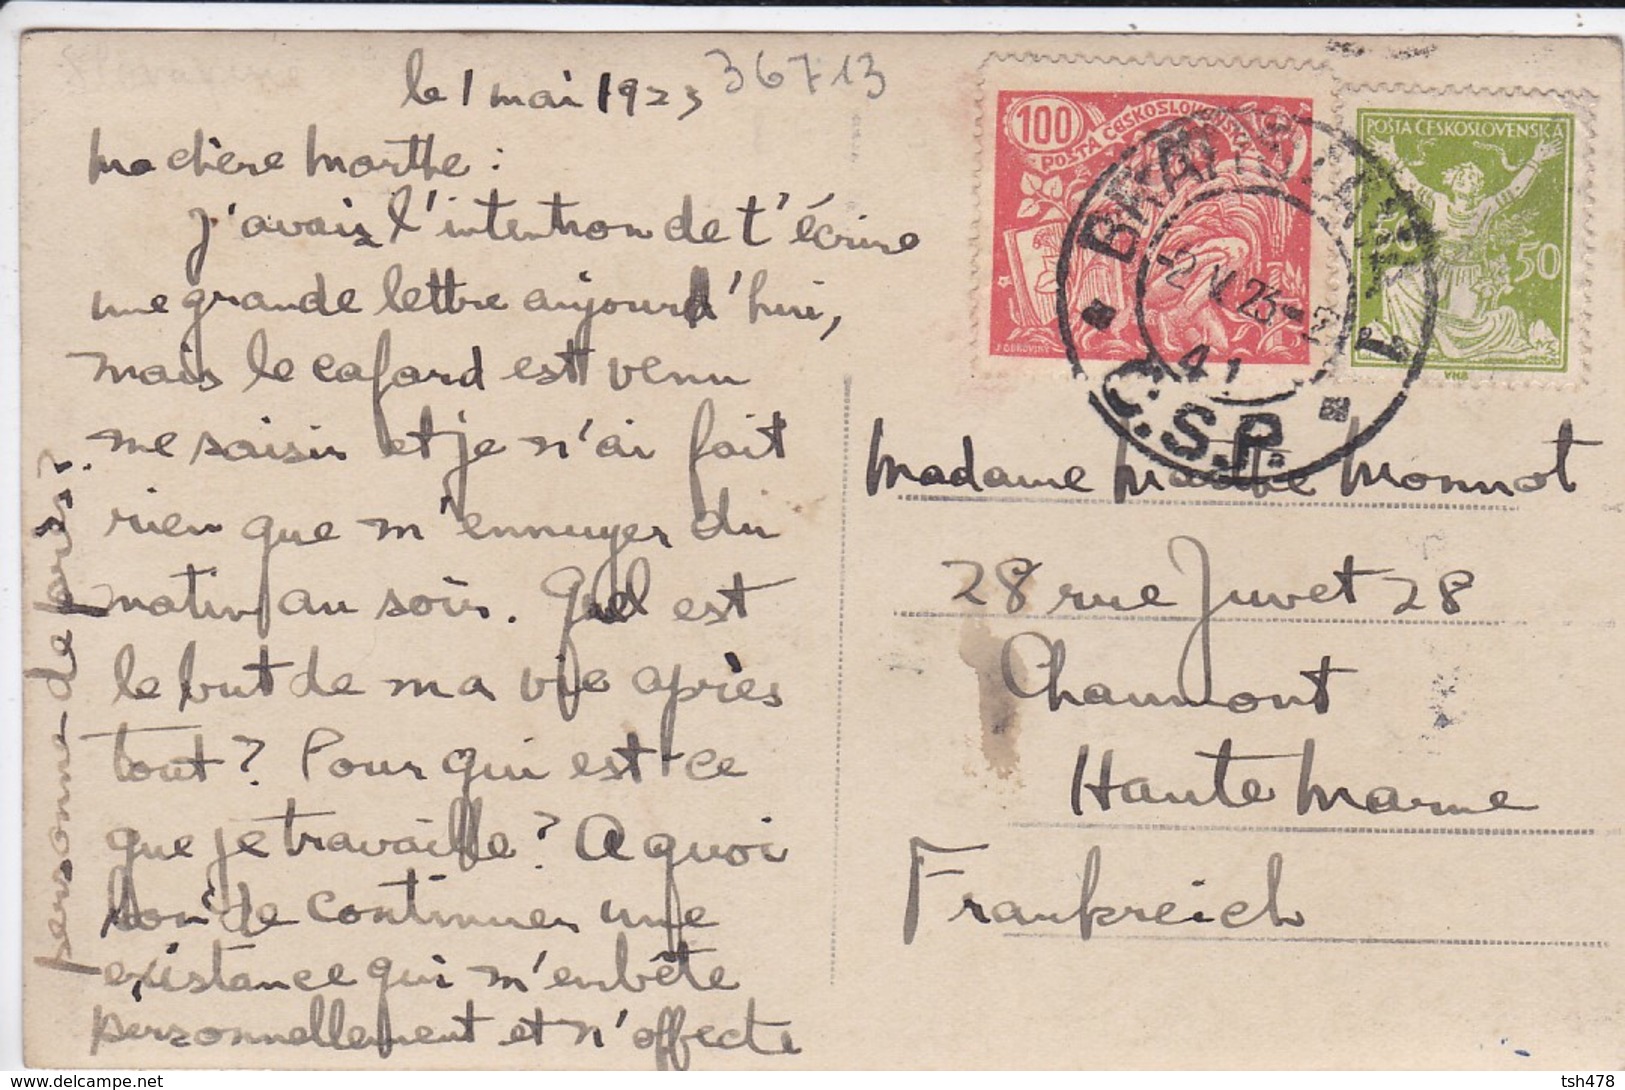 le 1 mai 1923
36713
Ma chère Marthe :
J'avais l'intention de t'écrire
une grande lettre aujourd'hui,
mais le cafard est venu
me saisir et je n'ai fait
rien que m'ennuyer du
matin au soir. Quel est
le but de ma vie après
tout? Pourquoi est-ce
que je travaille? A quoi
bon de continuer une
existance qui m'enbête
personnellement et n'affecte
personne de
100
POŠTA ČESKOSLOVENSKÁ
POŠTA ČESKOSLOVENSKÁ
50
VHB
BRATISLAVA
-2.V.23-
41
Č.S.P.
Madame Marthe Monnot
28 rue Juvet 28
Chaumont
Haute Marne
Frankreich
tsh478